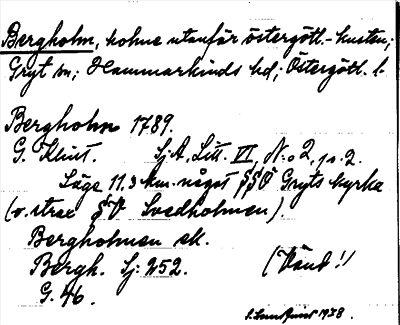 Bergholm, kohne utanför östergötl.-kusten;
Gryt sn; Hammarkinds hd; Östergötl. l.
Bergholm 1789.
G. Klint. Sj.A. Litt. VI, N:o 2, p. 2.
Läge 11.3 km. något SSO Gryts kyrka
(o. strax SV Svedholmen).
Bergholmen ek.
Bergh. Sj: 252.
G. 46. (Vänd!)
1928.